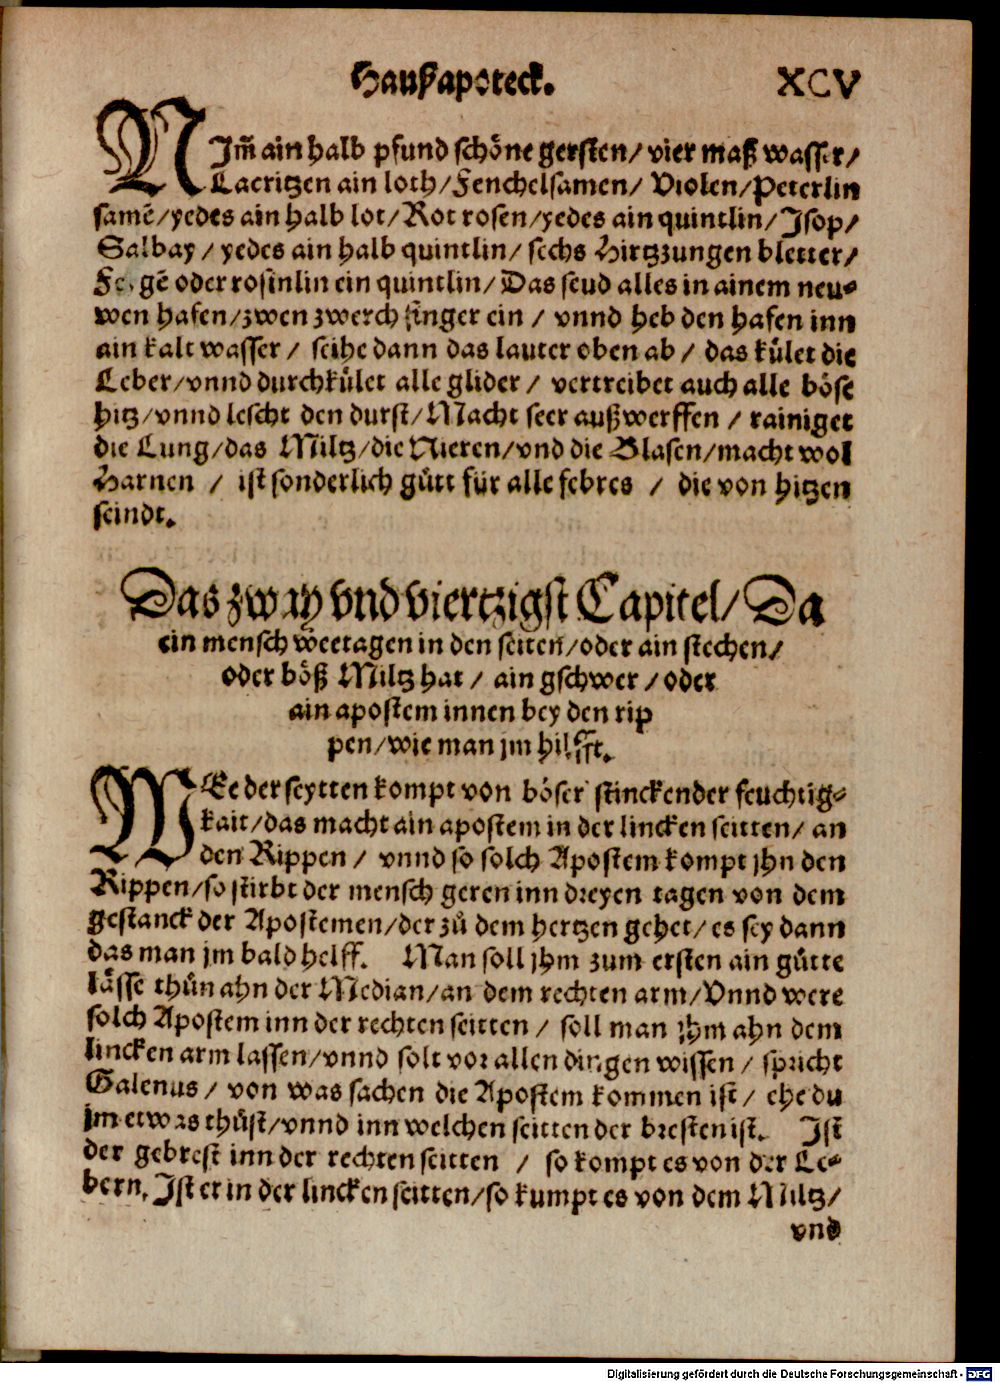 Haußapoteck. XCV
NIm̃ ain halb pfund schöne gersten/ vier maß wasser/
Lacritzen ain loth/ Fenchelsamen/ Violen/ Peterlin
samē/ yedes ain halb lot/ Rot rosen/ yedes ain quintlin/ Jsop/
Salbay / yedes ain halb quintlin/ sechs Hirtzzungen bletter/
Feigē oder rosinlin ein quintlin/ Das seud alles in ainem neu-
wen hafen/ zwen zwerch finger ein / vnnd heb den hafen inn
ain kalt wasser / seihe dann das lauter oben ab / das kůlet die
Leber/ vnnd durchkůlet alle glider / vertreibet auch alle böse
hitz/ vnnd lescht den durst/ Macht seer außwerffen / rainiget
die Lung/ das Miltz/ die Nieren/ vnd die Blasen/ macht wol
Harnen / ist sonderlich gůtt für alle febres / die von hitzen
seindt.
Das zway vnd viertzigst Capitel/ Da
ein mensch weetagen in den seiten/ oder ain stechen/
oder böß Miltz hat / ain gschwer / oder
ain apostem innen bey den rip
pen/ wie man jm hilfft.
WEe der seytten kompt von böser stinckender feuchtig-
kait/ das macht ain apostem in der lincken seitten/ an
den Rippen / vnnd so solch Apostem kompt jhn den
Rippen/ so stirbt der mensch geren inn dreyen tagen von dem
gestanck der Apostemen/ der zů dem hertzen gehet/ es sey dann
das man jm bald helff. Man soll jhm zum ersten ain gůtte
låsse thůn ahn der Median/ an dem rechten arm/ Vnnd were
solch Apostem inn der rechten seitten / soll man jhm ahn dem
lincken arm lassen/ vnnd solt vor allen dingen wissen / spricht
Galenus / von was sachen die Apostem kommen ist / ehe du
jm etwas thůst/ vnnd inn welchen seitten der bresten ist. Jst
der gebrest inn der rechten seitten / so kompt es von der Le-
bern, Jst er in der lincken seitten/ so kumpt es von dem Miltz/
vnd
Digitalisierung gefördert durch die Deutsche Forschungsgemeinschaft - DFG